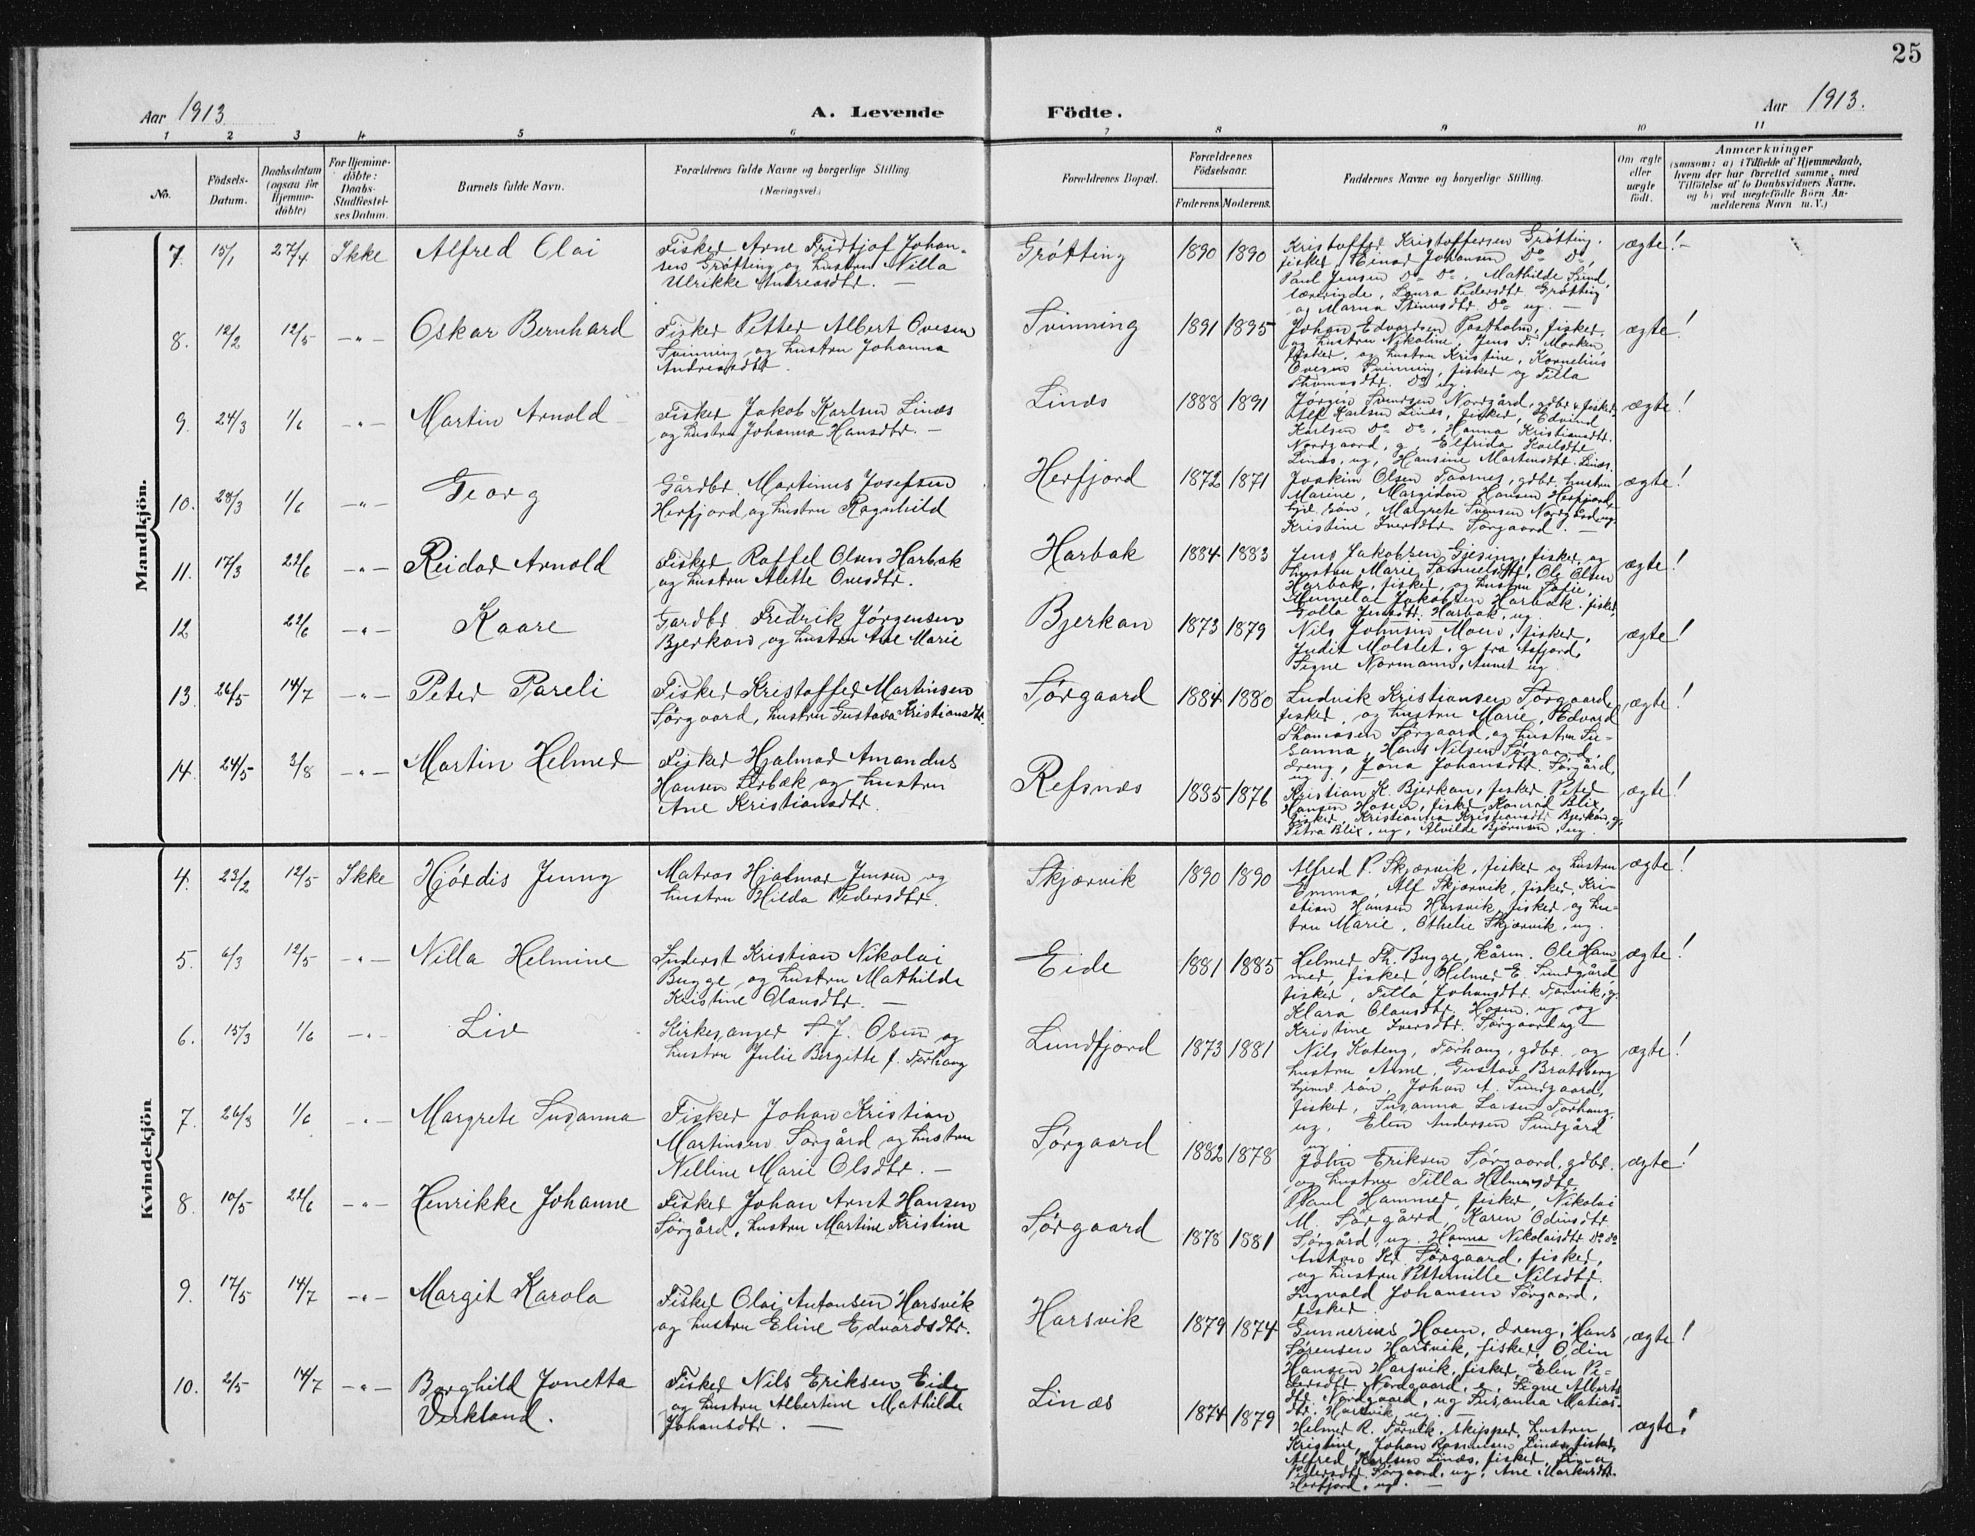 25
Aar 1913
A. Levende Födte.
Aar 1913.
1 2 3 4 5 6 7 8 9 10 11
No.
Födsels-
Datum.
Daabsdatum
(ogsaa for
Hjemme-
döbte)
For Hjemme-
döbte:
Daabs-
Stadfæstel-
ses Datum.
Barnets fulde Navn.
Forældrenes fulde Navne og borgerlige Stilling
(Næringsvei.)
Forældrenes Bopæl.
Forældrenes
Födselsaar.
Faderens Moderens.
Faddernes Navne og borgerlige Stilling.
Om ægte
eller
uægte
født.
Anmærkninger
(saasom: a) i Tilfælde af Hjemmedaab,
hvem der har forrettet samme, med
Tilföielse af to Daabsvidners Navne,
og b) ved uægtefödte Börn An-
melderens Navn m. V.)
Mandkjön.
7. 15/1 27/4 Ikke Alfred Olai
Fisker Arne Fridtjof Johan-
sen Grøtting og hustru Nilla
Ulrikke Andreasdtr. —
Grøtting 1890 1890
Kristoffer Kristoffersen Grøtting,
fisker, Einar Johansen Do Do,
Paul Jensen Do Do, Mathilde
lærerinde, Laura Pedersdtr. Grøtting
og Marna Do ug. —
ægte! -
8. 12/2 12/5 -"- Oskar Bernhard
Fisker Petter Albert Ovesen
Svinning og hustru Johanna
Andreasdtr.
Svinning 1891 1895
Johan Edvardsen Postholm, fisker,
og hustru Nikoline, Jens F. Morken
fisker, og hustru Kristine, Kornelius
Ovesen Svinning, fisker og Tilla
Thomasdtr. Do ug.
ægte!
9. 24/3 1/6 -"- Martin Arnold
Fisker Jakob Karlsen Linæs
og hustru Johanna Hansdtr. —
Linæs 1888 1891
Jørgen Svendsen Nordgård, gdbr & fisker
Alf Karlsen Linæs, fisker, Edvind
Karlsen Do Do, Hanna Kristiansdtr.
Nordgaard, g, Elfrida Karlsdtr
Linæs, ug, Hansine Martinsdtr. Linæs.
ægte!
10. 28/3 1/6 -"- Georg
Gårdbr. Martinus Josefsen
Herfjord og hustru Ragnhild
Herfjord 1872 1871
Joakim Olsen Taarnes, gdbr. hustru
Marine, Margidon Hansen Herfjord,
gdb. søn, Margrete Svensen Nordgård, ug,
Kristine Iversdtr. Sørgaard. —
ægte!
11. 17/3 22/6 -"- Reidar Arnold
Fisker Roffel Olsen Harbak
og hustru Alette Ovesdtr.
Harbak 1884 1883
Jens Jakobsen Gjesing, fisker og
hustru Marie Samuelsdtr, Ole Olsen
Harbak, fisker, og hustru Sofie,
Jakobsen Harbak, fisker,
Golla Jensdtr. Harbak, ug.
ægte!
12 22/6 -"- Kaare
Gardbr. Fredrik Jørgensen
Bjerkan og hustru Ane Marie
Bjerkan 1873 1879
Nils Johnsen Moen, fisker,
Judit Molslet, g fra Aafjord,
Signe Normann, Aunet ug.
ægte!
13. 26/5 14/7 -"- Peter Pareli
Fisker Kristoffer Martinsen
Sørgaard, hustru Gustava Kristiansdtr.
Sørgaard 1884 1880
Ludvik Kristiansen Sørgaard,
fisker, og hustru Marie, Edvard
Thomasen Sørgaard, og hustru Su-
sanna, Hans Nilsen Sørgaard,
dreng, Jona Johansdtr. Sørgård,
ug
ægte!
14. 24/5 3/8 -"- Martin Helmer
Fisker Hjalmar Amandus
Hansen Lerbæk og hustru
Ane Kristiansdtr.
Refsnæs 1885 1876
Kristian K. Bjerkan, fisker Peter
Hansen Hosen, fisker, Konrad Blix,
fisker, Kristianna Kristiansdtr Bjerkan, g,
Petra Blix, ug, Alvilde Bjørnsen, ug.
ægte!
Kvindekjön
4. 23/2 12/5 Ikke Hjørdis Jenny
Matros Hjalmar Jensen og
hustru Hilda Pedersdtr.
Skjærvik 1890 1890
Alfred P. Skjærvik, fisker og hustru
Emma, Alf Skjærvik, fisker, Kri-
stian Hansen Harsvik, fisker og hu-
tru Marie, Othelie Skjærvik, ug.
ægte!
5. 6/3 12/5 -"- Nilla Helmine
Inderst Kristian Nikolai
Bugge, og hustru Mathilde
Kristine Olausdtr. —
Eide 1881 1885
Helmer Th. Bugge, Ole Ham-
mer, fisker, Helmer E. Sundgård,
fisker, Tilla Johansdtr. Tørvik, g.
Klara Olausdtr. Hosen, ug og
Kristine Iversdtr. Sørgaard ug
ægte!
6. 15/3 1/6 -"- Liv
Kirkesanger S. J. Osen og
hustru Julie Bergitte f. Terhaug
Sundfjord 1873 1881
Nils Koteng, Tørhaug, gdbr. og
hustru Anne, Gustav Bratsberg
hjemd søn, Johan A. Sundgaard,
fisker, Susanna Larsen Tørhaug,
ug, Elen Andersen Sundgård
ug
ægte!
7. 26/3 1/6 -"- Margrete Susanna
Fisker Johan Kristian
Martinsen Sørgård og hustru
Nelline Marie Olsdtr. —
Sørgaard 1882 1878
John Eriksen Sørgaard, gdbr.
og hustru Tilla Helmersdtr,
Paul Hammer, fisker, Nikolai
M. Sørgård, Karen Odinsdtr
Sørgård, ug. Hanna Nikolaisdtr Do Do
ægte!
8. 10/5 22/6 -"- Henrikke Johanne
Fisker Johan Arnt Hansen
Sørgård, hustru Martine Kristine
Sørgaard 1878 1881
Anton Kr Sørgaard, fisker,
og hustru Petternille Nilsdtr.
Ingvald Johansen Sørgaard,
fisker.
9. 17/5 14/7 -"- Margit Karola
Fisker Olai Antonsen Harsvik
og hustru Eline Edvardsdtr.
Harsvik 1879 1874
Gunnerius Hoem, dreng, Hans
Sørensen Harsvik, fisker, Odin
Hansen Harsvik, fisker, Elen Pe-
dersdtr. Nordgaard, g, Signe Alberts
dtr. Nordgaard, ug Susanna Matias-
dtr. Harsvik, ug. —
ægte!
10. 2/5 14/7 -"- Borghild Jonetta
Verkland.
Fisker Nils Eriksen Eide
og hustru Albertine Mathilde
Johansdtr. —
Linæs 1874 1879
Helmer R. Tørvik, skipper, hustru
Kristine, Johan Rasmussen Linæs, fisker,
Alfred Karlsen Linæs, fisker,
Pedersdtr. Sørgaard, ug, Ane Markusdtr.
Herfjord, ug. —
ægte!